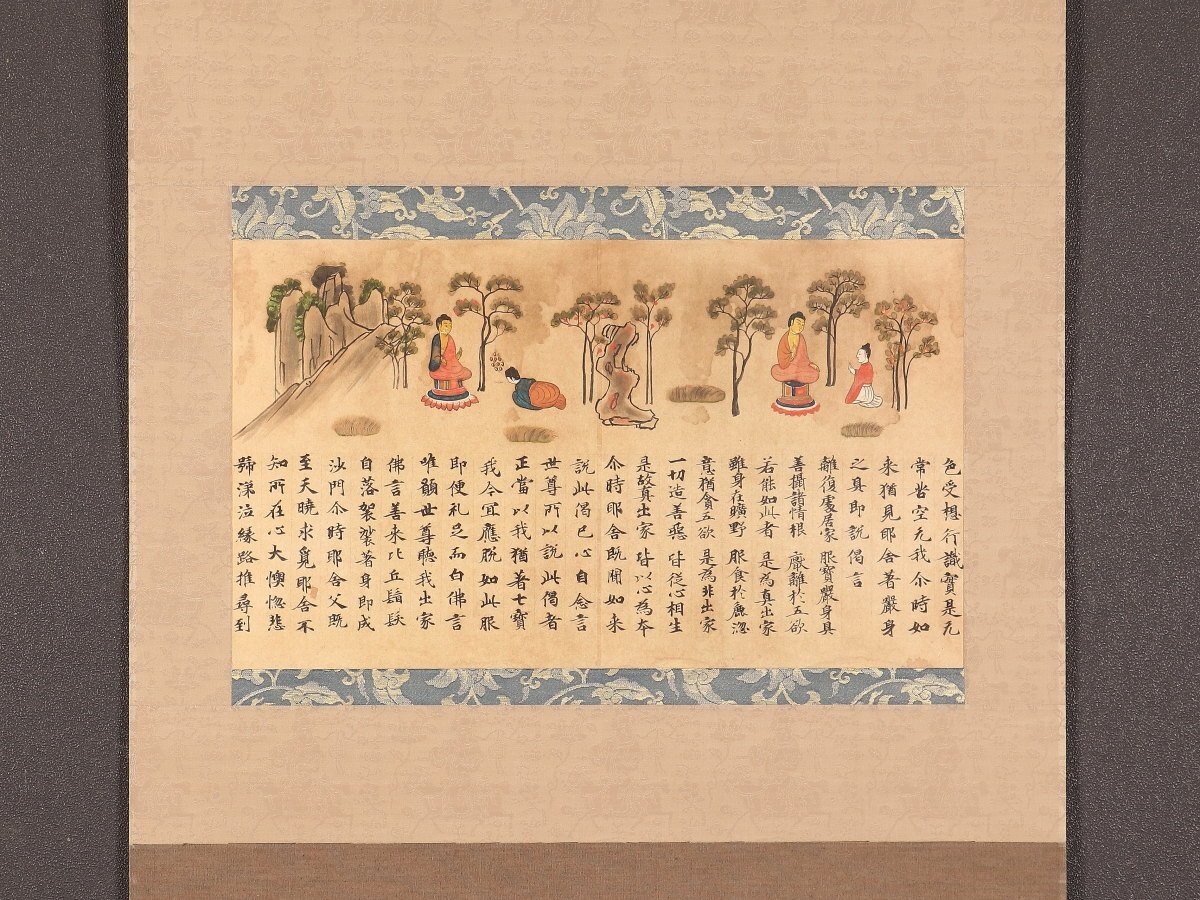 色受想行識實是无
常苦空无我尒時如
来猶見耶舎著嚴身
之具即說偈言
離復處居家 服寳嚴身具
善攝諸情根 猒離於五欲
若能如此者 是為真出家
雖身在曠野 服食於麁澁
意猶貪五欲 是為非出家
一切造善惡 皆従心相生
是故真出家 皆以心為本
尒時耶舎既聞如来
說此偈已心自念言
世尊所以說此偈者
正當以我猶著七寳
我今宜應脱如此服
即便礼足而白佛言
唯願世尊聽我出家
佛言善来比丘鬚髮
自落袈裟著身即成
沙門尒時耶舎父既
至天曉求覓耶舎不
知所在心大懊惚悲
號涕泣緣路推尋到